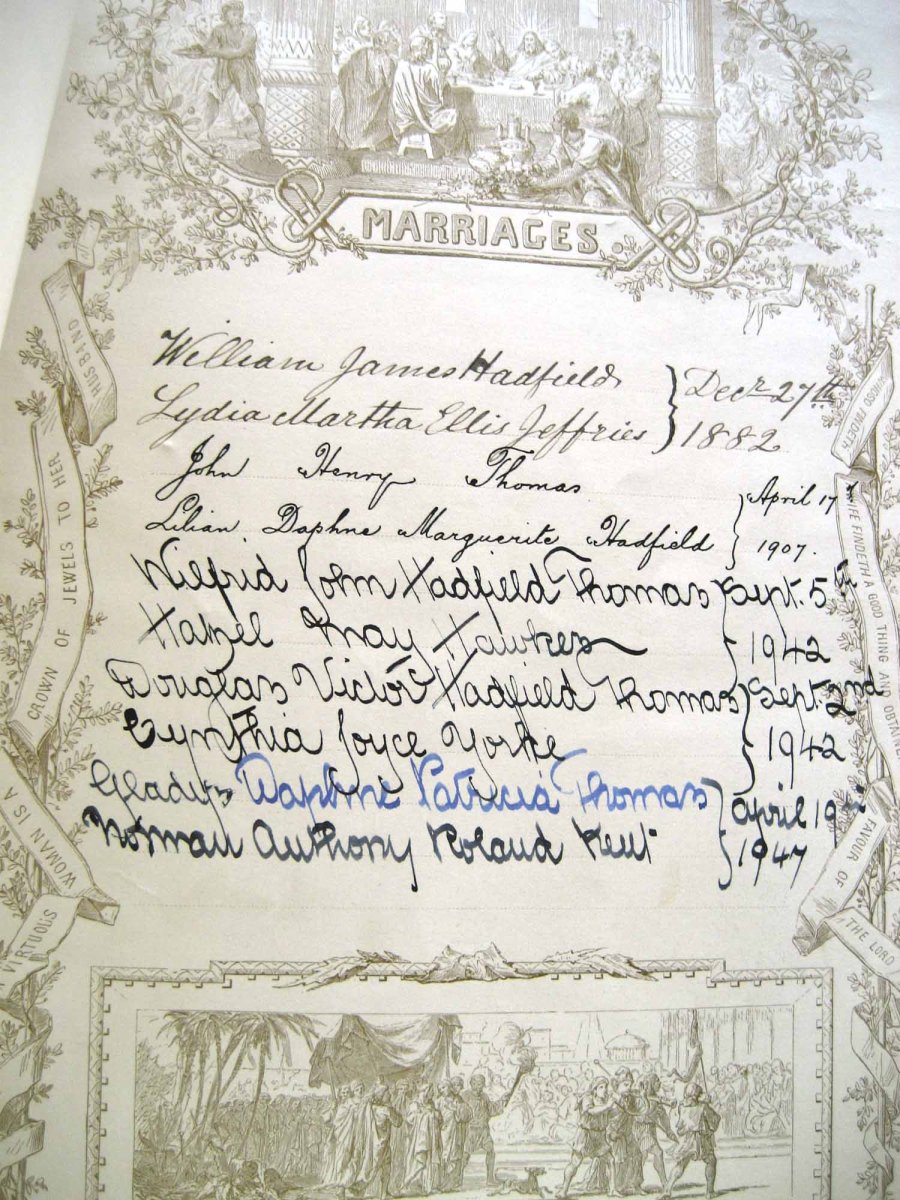 MARRIAGES.
William James Hadfield } Decr 27th
Lydia Martha Ellis Jeffries } 1882
John Henry Thomas } April 17
Lilian Daphne Marguerite Hadfield } 1907.
Wilfrid John Hadfield Thomas } Sept. 5th
Hazel May Hawkes } 1942
Douglas Victor Hadfield Thomas } Sept. 2nd
Cynthia Joyce Yorke } 1942
Gladys Daphne Patricia Thomas } April 19th
Norman Anthony Roland Kent } 1947
A VIRTUOUS WOMAN IS A CROWN OF JEWELS TO HER HUSBAND
WHOSO FINDETH A WIFE FINDETH A GOOD THING AND OBTAINETH FAVOUR OF THE LORD